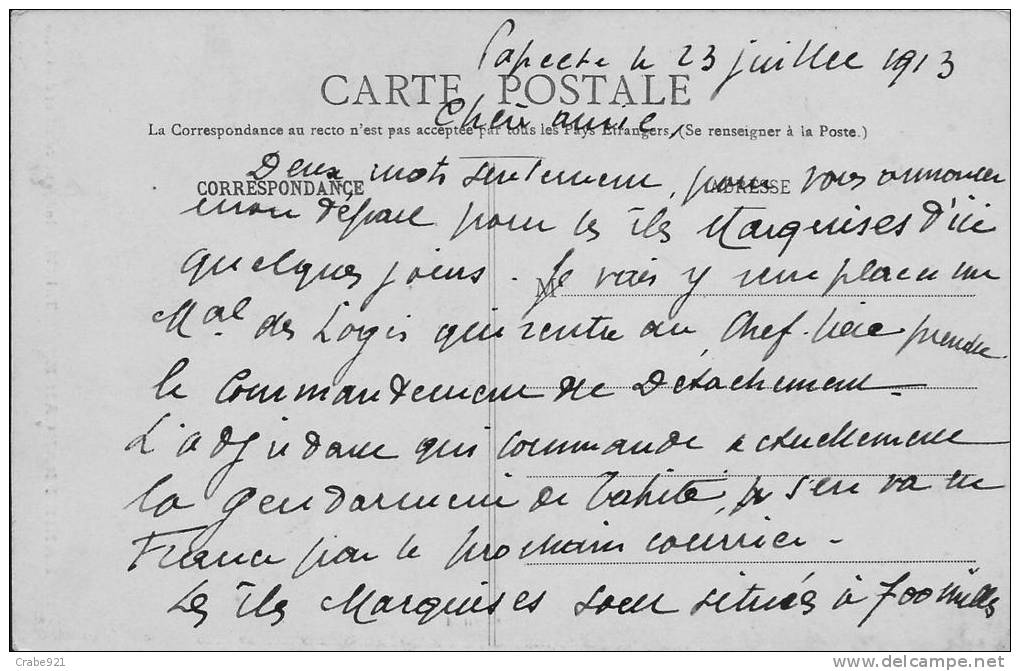 Papeete le 23 juillet 1913
CARTE POSTALE
Chère amie,
La Correspondance au recto n'est pas acceptée par tous les Pays Étrangers. (Se renseigner à la Poste.)
Deux mots seulement, pour vous annoncer
CORRESPONDANCE
ADRESSE
mon départ pour les îles Marquises d'ici
quelques jours. Je vais y remplacer un
M
Mal des Logis qui rentre au Chef-lieu prendre
le Commandement de Détachement
L'adjudant qui commande actuellement
la gendarmerie de Tahiti, s'en va en
France par le prochain courrier -
Les îles Marquises sont situées à 700 milles
Crabe921
delcampe.net